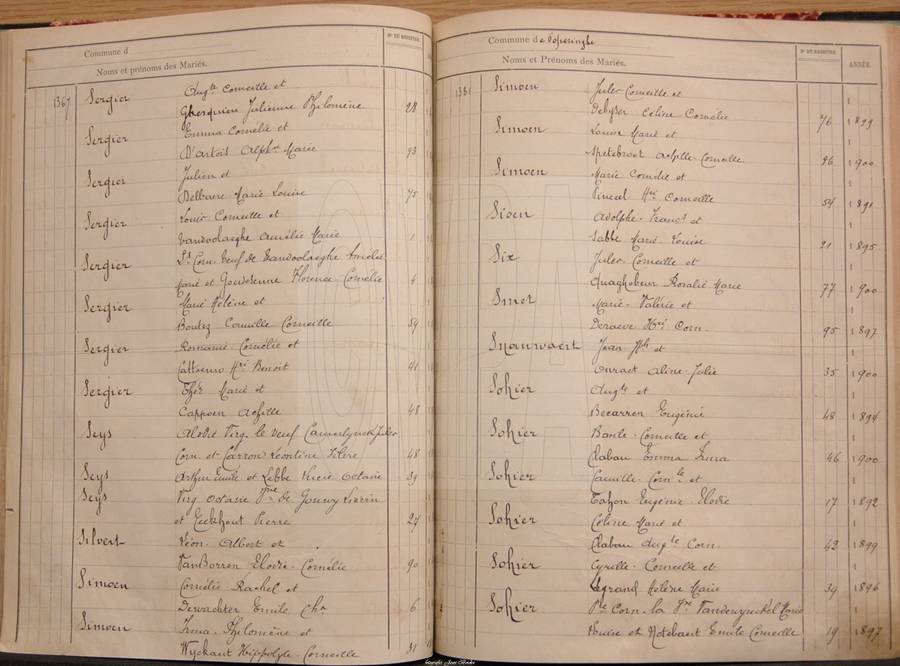 Commune d
Noms et prénoms des Mariés.
N° DU REGISTRE
1367 Sergier Augte Corneille et
Ghesquière Julienne Philomène 28
Sergier Emma Cornélie et
D'artois Alphse Marie 93
Sergier Julien et
Delbaere Marie Louise 75
Sergier Louis Corneille et
Vandoolaeghe Amélie Marie 1
Sergier Ls Corn. veuf de Vandoolaeghe Amélie
Marie et Goudezeune Florence Cornélie 4
Sergier Marie Hélène et
Boutez Camille Corneille 59
Sergier Romanie Cornélie et
Cattoeuw Hri Benoit 41
Sergier Marie et
Cappoen Achille 48
Seys Alodie Virg. le veuf
Corn. et Carron Léontine 48
Seys Arthur Emile et Lebbe Lucie Octavie 39
Seys Virg. Octavie Vve de
et Eeckhout Pierre 27
Silvert Léon Albert et
VanBorren Elodie Cornélie 90
Simoen Cornélie Rachel et
Dewachter Emile Chs 6
Simoen Irma Philomène et
Wyckaert Hippolyte Corneille 31
Commune de Poperinghe
Noms et Prénoms des Mariés.
N° DU REGISTRE
ANNÉE.
1351 Simoen Jules Corneille et
Céline Cornélie 76 1899
Simoen Louise Marie et
Achille Corneille 96 1900
Simoen Marie Cornélie et
Hri Corneille 54 1891
Sioen Adolphe Franç. et
Sabbe Marie Louise 21 1895
Six Jules Corneille et
Quaghebeur Rosalie Marie 77 1900
Smet Marie Valérie et
Deraeve Hri Corn. 95 1897
Jean Bte et
Aline Julie 35 1900
Sohier Augte et
Becarren Eugénie 48 1894
Sohier Corneille et
Clabau Emma Irma 46 1900
Sohier Camille Cornle et
Tahon Eugénie Elodie 17 1892
Sohier Céline Marie et
Clabau Augte Corn. 42 1899
Sohier Cyrille Corneille et
Legrand Hélène Marie 39 1896
Sohier Corn. la Vve Vandewynckel Marie
Louise et Notebaert Emile Corneille 19 1897